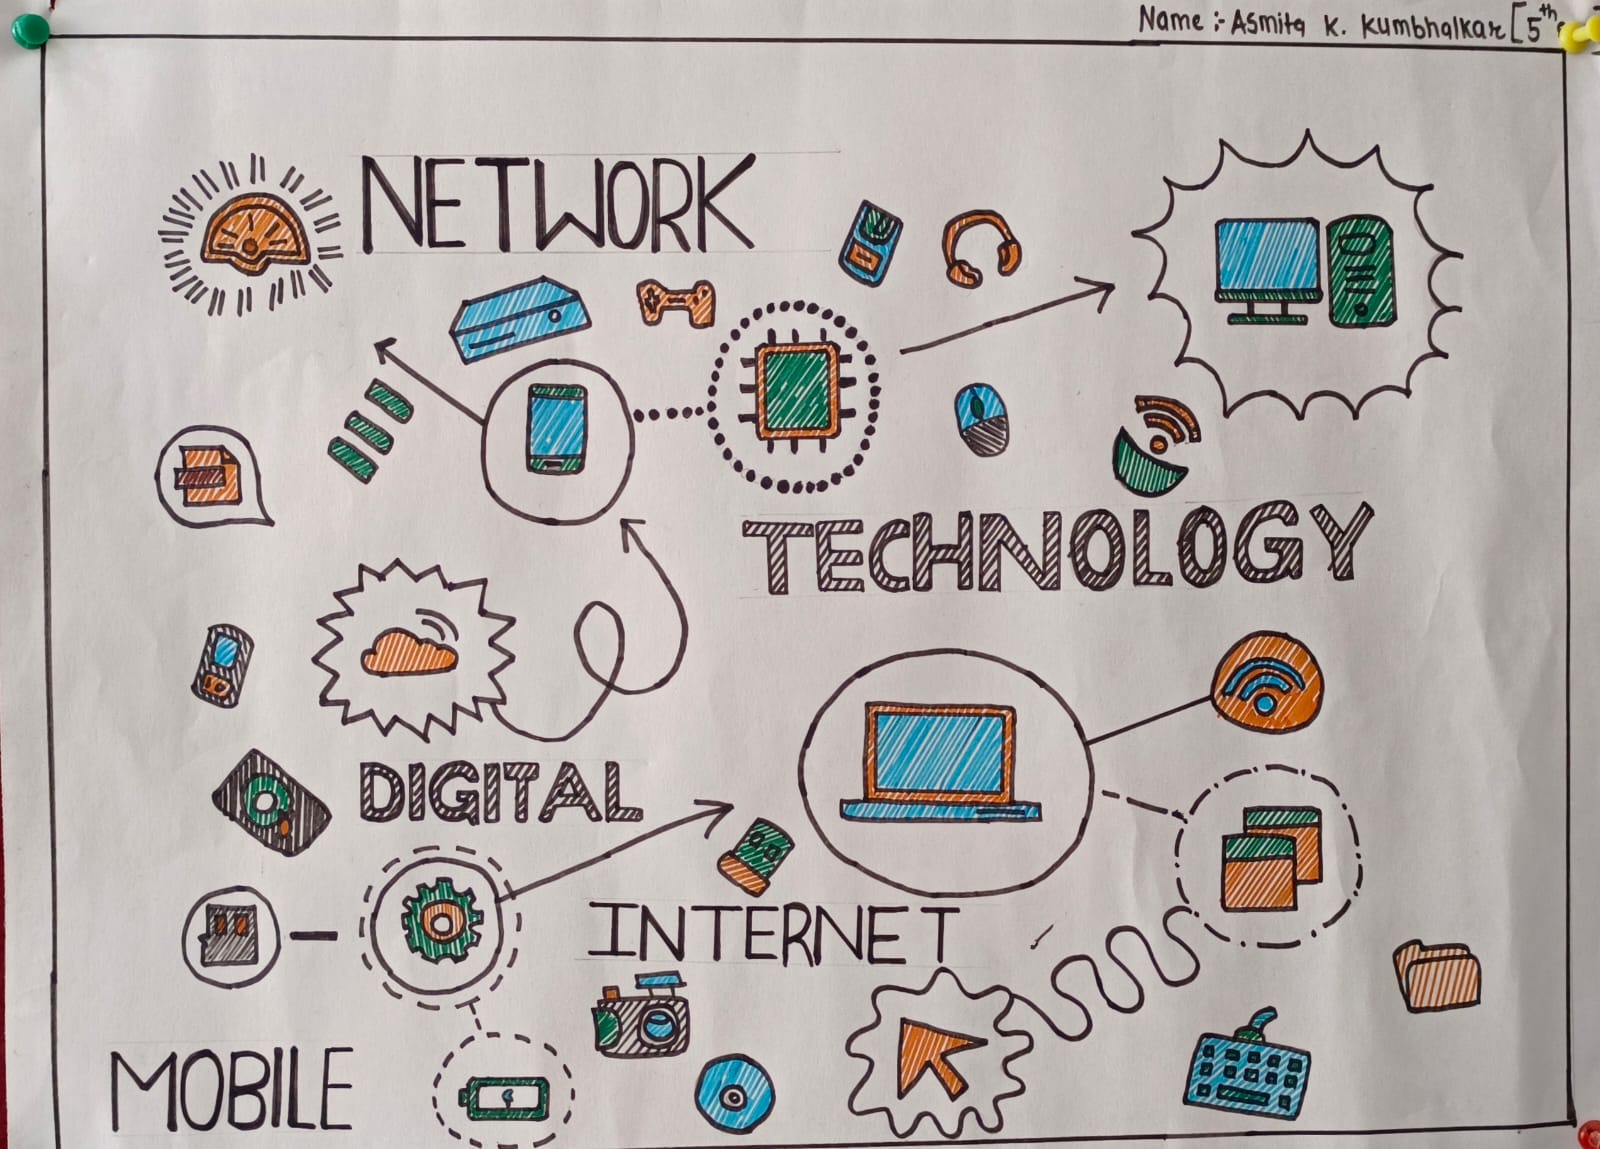 Name :- Asmita K. Kumbhalkar [5th
NETWORK
TECHNOLOGY
DIGITAL
INTERNET
MOBILE